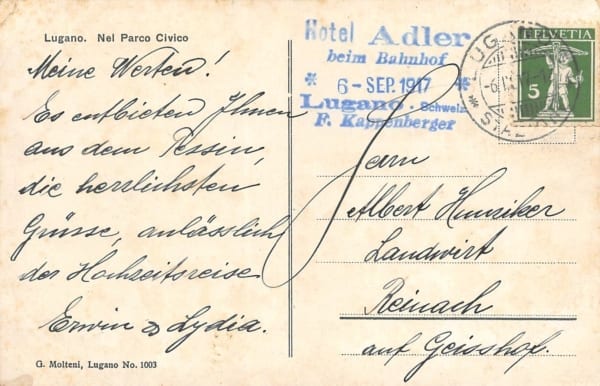 Lugano. Nel Parco Civico
Meine Werten!
Es entbieten Ihnen
aus dem Tessin,
die herzlichsten
Grüsse, anlässlich
der Hochzeitsreise
Erwin & Lydia.
G. Molteni, Lugano No. 1003
Hotel Adler
beim Bahnhof
* 6-SEP. 1917 *
Lugano. Schweiz
F. Kappenberger
HELVETIA
5
LUGANO
Herrn
Albert Hunziker
Landwirt
Reinach
auf Geisshof.